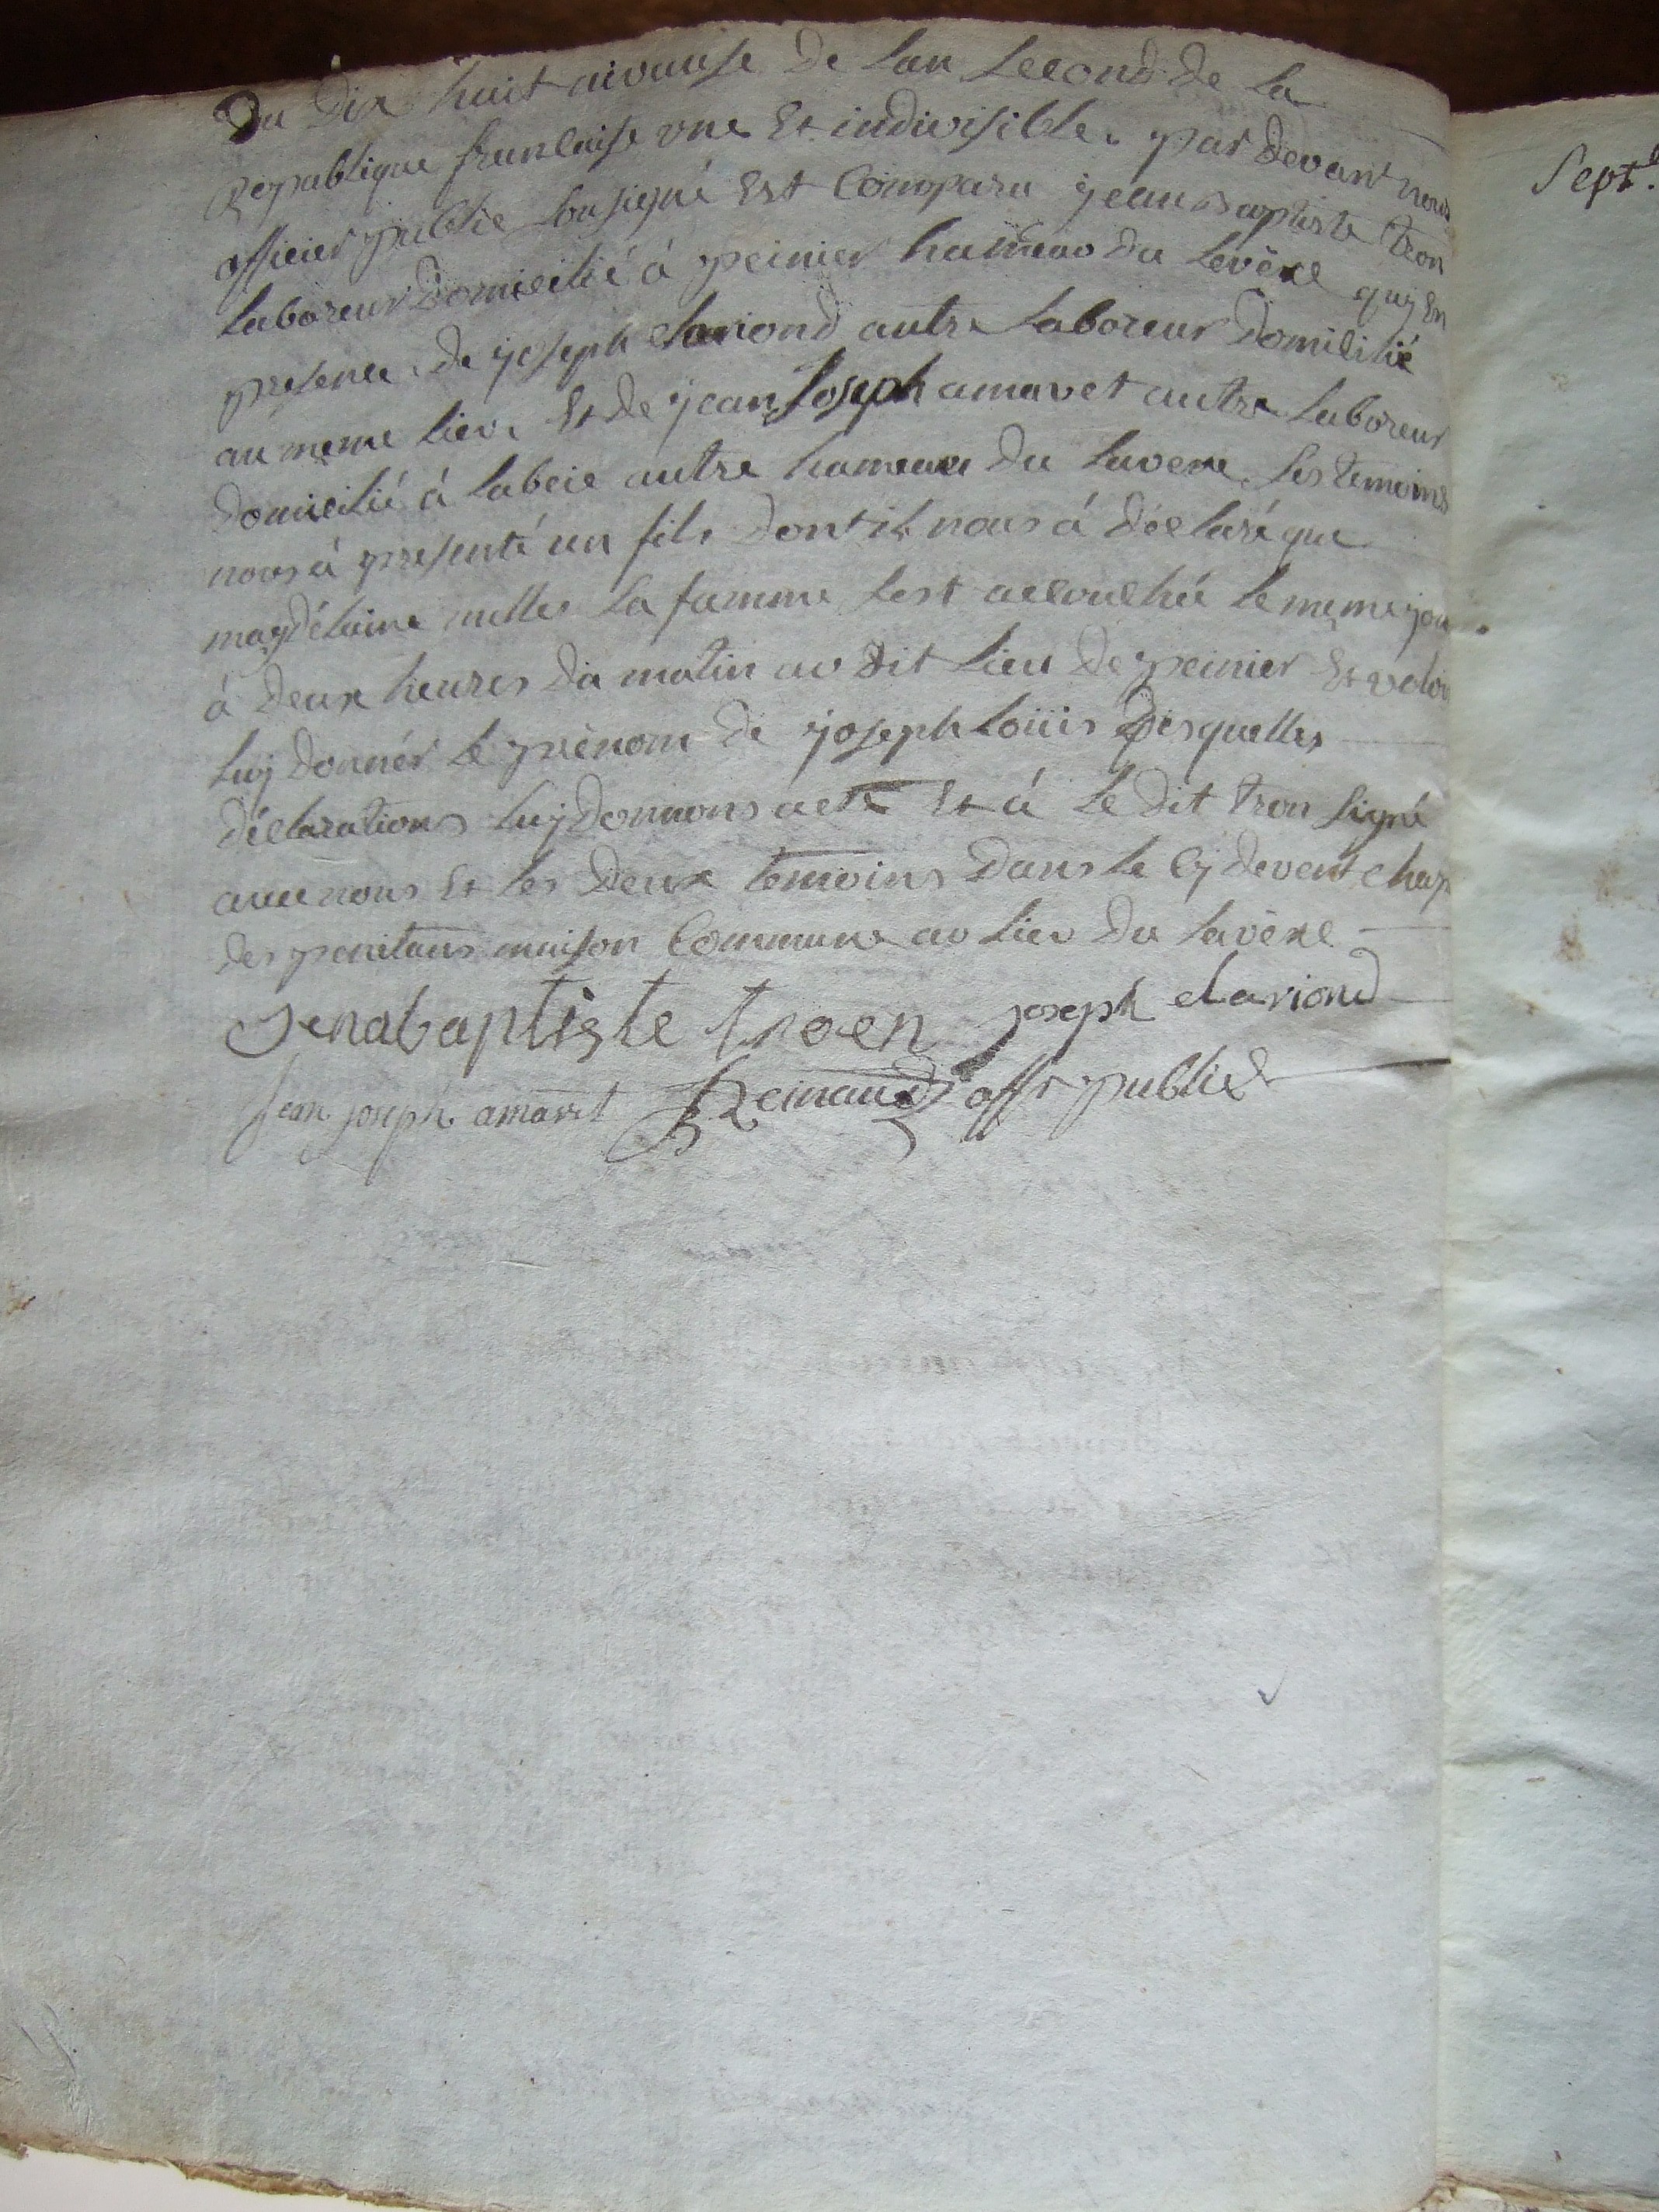 Du Dix huit nivause De Lan Second De La
Republique franlaise une Et indivisible. par devant nous
officier publie Sousigné Est Comparu jean Baptiste tron
Laboreur Domicilié à peinier hameau Du Lavéne quy En
presence De joseph clariond autre Laboreur Domicilié
au meme Lieu Et De jean Joseph amavet autre Laboreur
Domicilié à Labeie autre hameau Du Lavene Les temoins
nous à presenté un fils Dont il nous à Déclaré que
magdélaine La famme sest accouchée Le meme jou
à Deux heures Du matin au Dit Lieu De peinier Et
Luy Donnér Le prénom De joseph Loüis Desquelles
Déclarations Luy Donnons acte Et à Le Dit tron Signé
avec nous Et Les Deux temoins Dans le Cy devent chap
des penitans maison Commune au Lieu Du Lavéne
Jenabaptiste troen joseph clariond
Jean joseph amavet Reinaud offr publied
Sept.